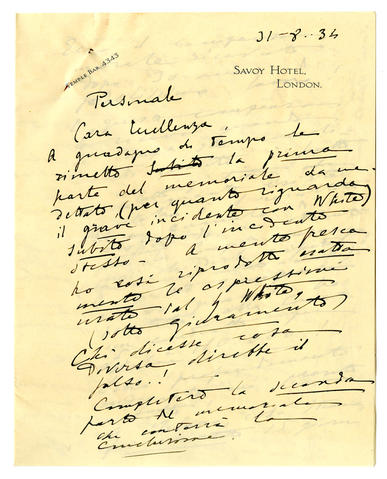 31-8-34
TEMPLE BAR 4343
SAVOY HOTEL,
LONDON.
Personale
Cara Eccellenza,
A guadagno di tempo le
rimetto subito la prima
parte del memoriale da me
dettato (per quanto riguarda
il grave incidente con White)
subito dopo l'incidente
stesso - A mente fresca
ho così riprodotto esatta
mente le espressioni
usate dal White,
(sotto giuramento)
Chi dicesse cosa
diversa direbbe il
falso..!
Completerò la seconda
parte del memoriale
che conterrà la
conclusione.